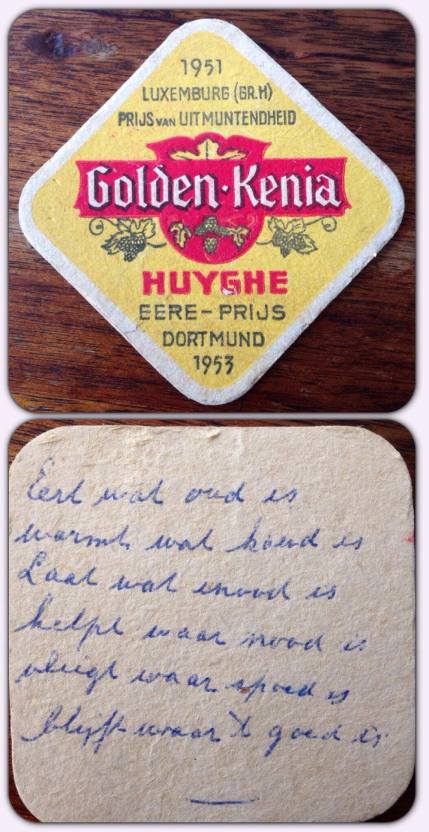 1951
LUXEMBURG (GR.H)
PRIJS VAN UITMUNTENDHEID
Golden·Kenia
HUYGHE
EERE-PRIJS
DORTMUND
1953
Eert wat oud is
warmt wat koud is
Laat wat snood is
helpt waar nood is
vliegt waar spoed is
blijft waar 't goed is